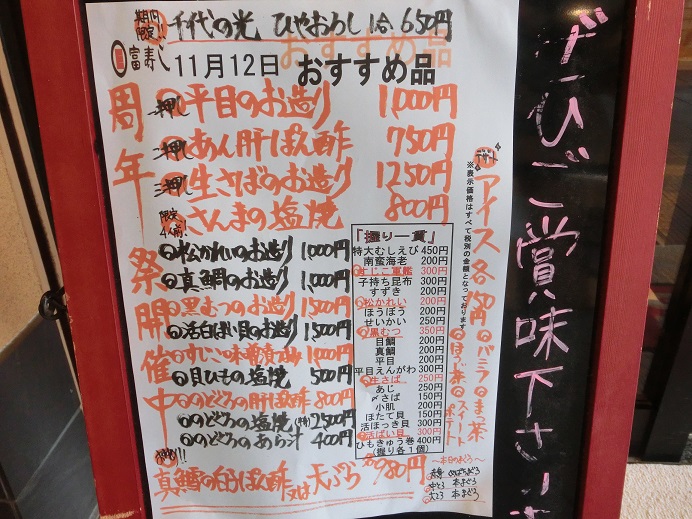 期間限定!! 千代の光 ひやおろし 1合 650円
富寿し
11月12日 おすすめ品
周年祭開催中
一押し 平目のお造り 1,000円
二押し あん肝ぽん酢 750円
三押し 生さばのお造り 1250円
限定4人前! さんまの塩焼 800円
松かれいのお造り 1,000円
真鯛のお造り 1,000円
黒むつのお造り 1,500円
活白ばい貝のお造り 1,500円
すじこ味噌漬
貝ひもの塩焼 500円
のどぐろの肝ぽん酢 800円
のどぐろの塩焼(特) 2,500円
のどぐろのあら汁 400円
真鱈の白子ぽん酢又は天ぷら 980円
「握り一貫」
特大むしえび 450円
南蛮海老 200円
すじこ軍艦 300円
子持ち昆布 300円
すずき 200円
松かれい 200円
ほうぼう 200円
せいかい 250円
黒むつ 350円
目鯛 200円
真鯛 200円
平目 200円
平目えんがわ 300円
生さば 250円
あじ 250円
〆さば 150円
小肌 200円
ほたて貝 150円
活ほっき貝 300円
活ばい貝 300円
ひもきゅう巻 400円
(握り各1個)
デザート
アイス各150円
バニラ
ほうじ茶
スイートポテト
※表示価格はすべて税別の金額となっております
〜本日のまぐろ〜
赤身 めばちまぐろ
中とろ 本まぐろ
大とろ 本まぐろ
ぜひご賞味下さい